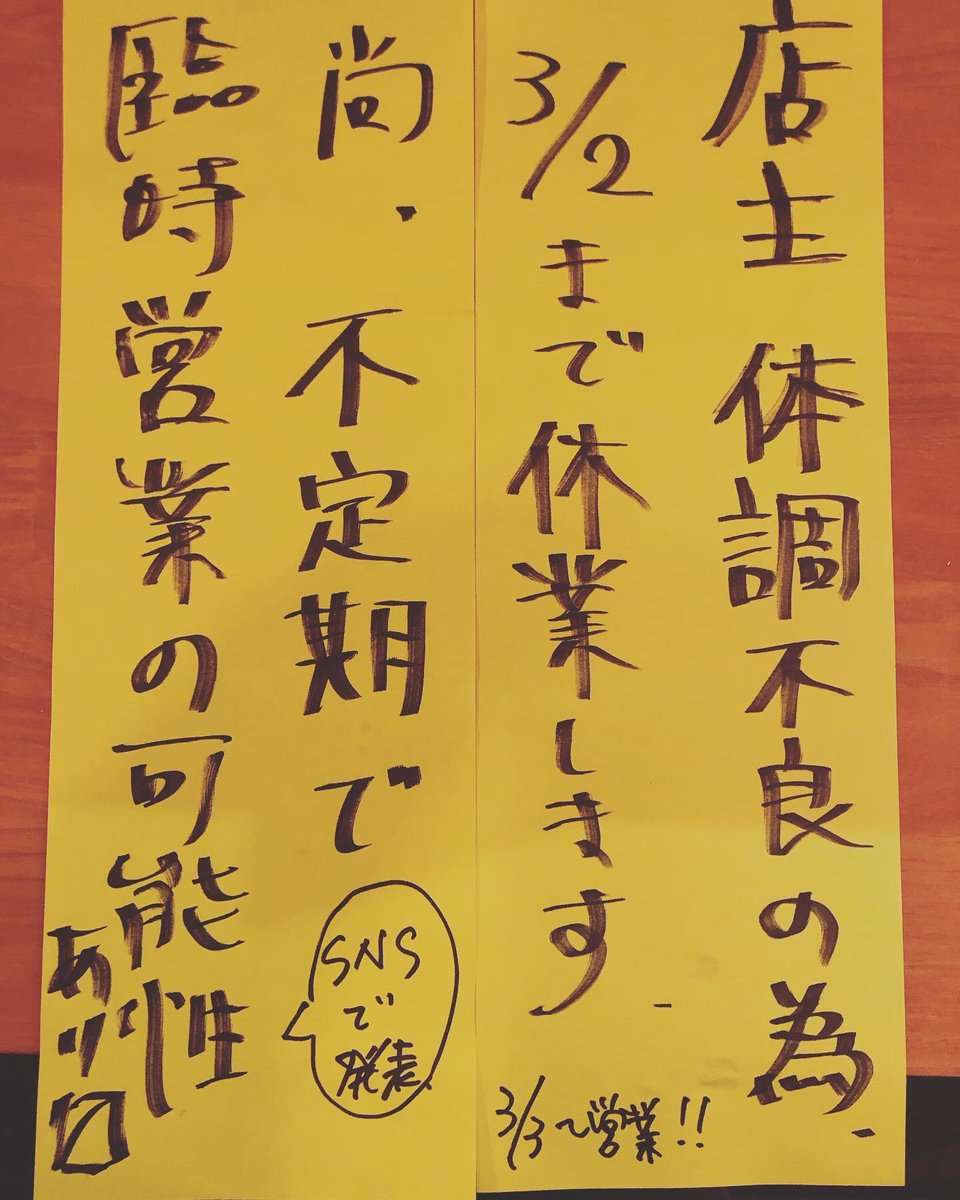 店主 体調不良の為.
3/2まで休業します.
3/3〜営業!!
尚.不定期で
SNS
で
発表.
臨時営業の可能性
あり〼